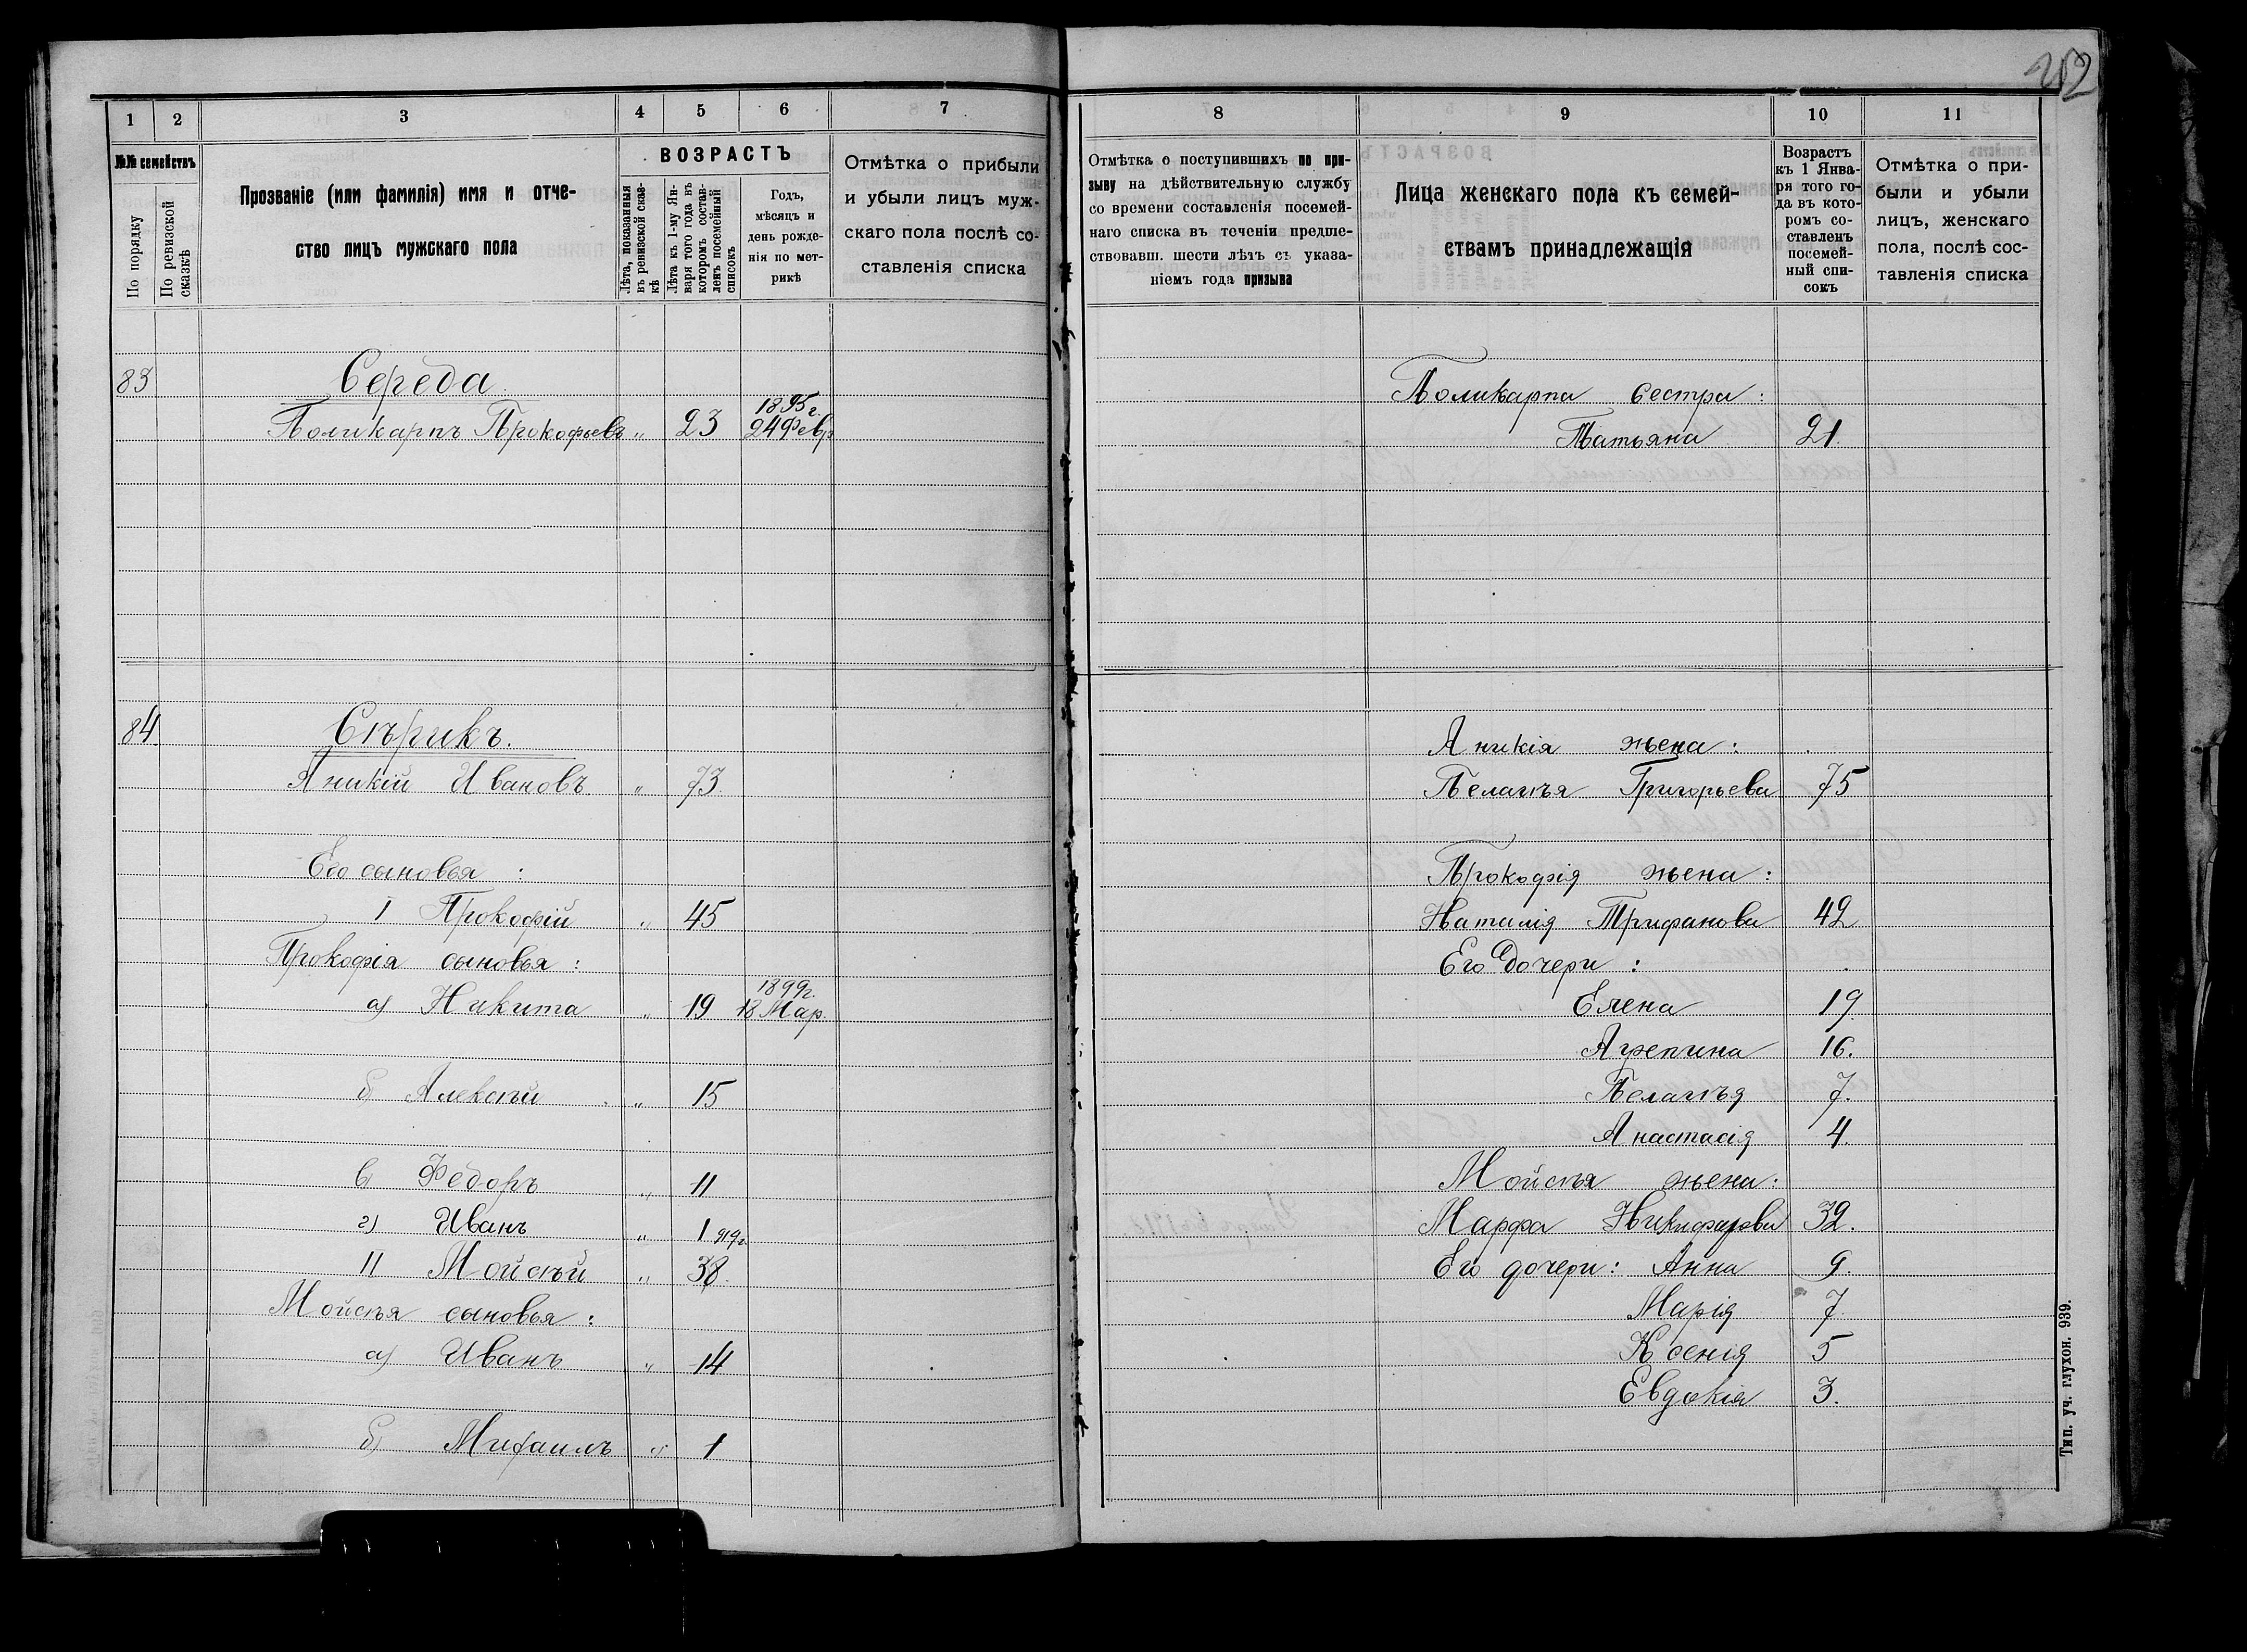 252
1 2 3 4 5 6 7
№№ семействъ
По порядку
По ревизской сказкѣ
Прозваніе (или фамилія) имя и отче-
ство лицъ мужскаго пола
ВОЗРАСТЪ
Лѣта, показанныя въ ревизской сказ-кѣ
Лѣта къ 1-му Ян-варя того года въ которомъ состав-ленъ посемейный списокъ
Годъ,
мѣсяцъ и
день рожде-
нія по мет-
рикѣ
Отмѣтка о прибыли
и убыли лицъ муж-
скаго пола послѣ со-
ставленія списка
83 Середа
1895 г.
Поликарпъ Прокофьевъ „ 23 24 Февр
84 Сѣрикъ.
Аникій Ивановъ „ 73
Его сыновья :
I Прокофій „ 45
Прокофія сыновья :
1899 г.
а) Никита „ 19 18 Мар.
б Алексѣй „ 15
в) Ѳедоръ „ 11
г) Иванъ „ 1 919 г.
II Мойсѣй „ 38.
Мойсѣя сыновья :
а) Иванъ „ 14
б) Михаилъ „ 1
8 9 10 11
Отмѣтка о поступившихъ по при-
зыву на дѣйствительную службу
со времени составленія посемей-
наго списка въ теченіи предше-
ствовавш. шести лѣтъ съ указа-
ніемъ года призыва
Лица женскаго пола къ семей-
ствамъ принадлежащія
Возрастъ
къ 1 Янва-
ря того го-
да въ кото-
ромъ со-
ставленъ
посемей-
ный спи-
сокъ
Отмѣтка о при-
были и убыли
лицъ, женскаго
пола, послѣ сос-
тавленія списка
Поликарпа сестра :
Татьяна 21.
Аникія жена :
Пелагѣя Григорьева 75
Прокофія жена :
Наталія Трифанова 42
Его дочери :
Елена 19
Агрепина 16.
Пелагѣя 7.
Анастасія 4.
Мойсѣя жена :
Марфа Никифорова 32.
Его дочери : Анна 9.
Марія 7.
Ксенія 5
Евдокія 3.
Тип. уч. глухон. 939.